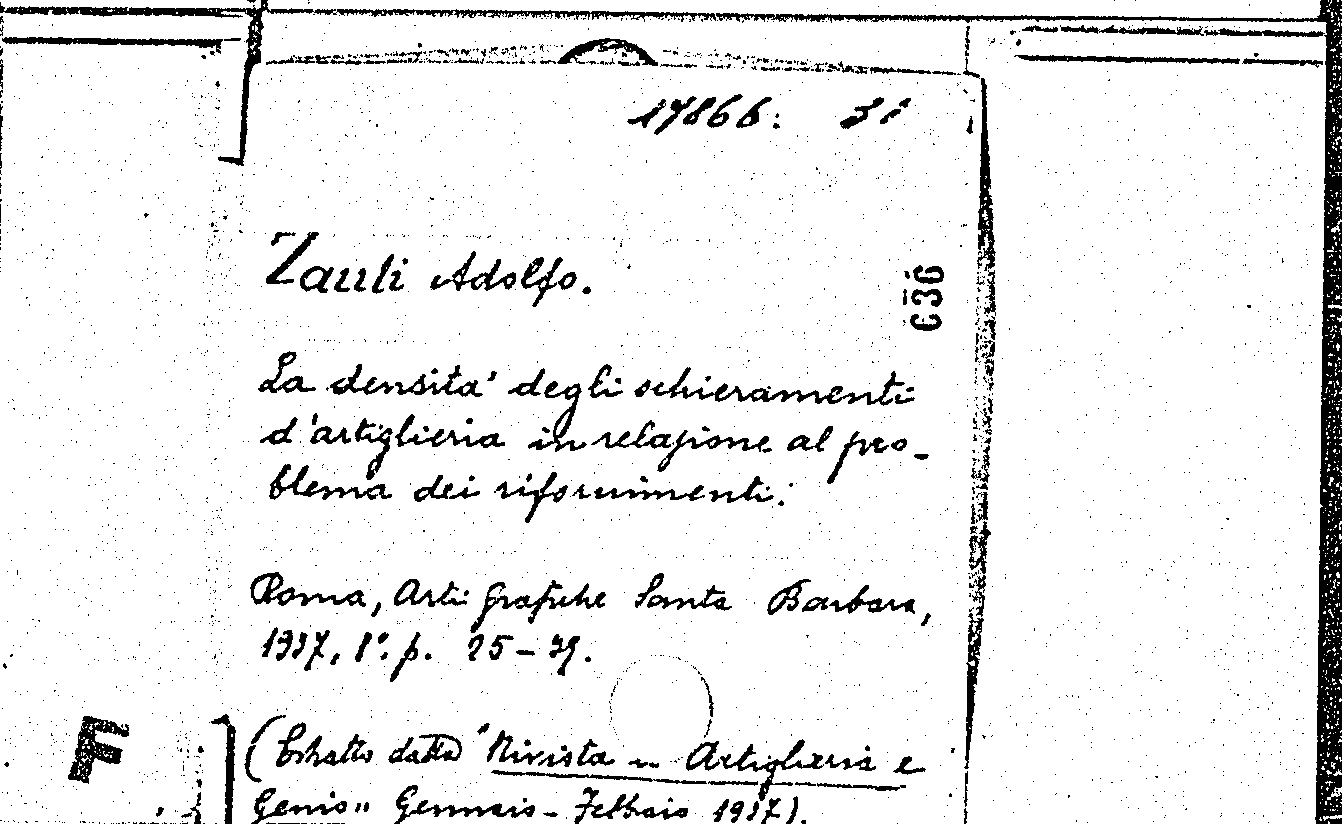 17866. 31
Zauli Adolfo.
636
La densita' degli schieramenti
d'artiglieria in relazione al pro-
blema dei rifornimenti.
Roma, Arti grafiche Santa Barbara,
1937, 8°. p. 25-39.
(Estratto dalla "Rivista di Artiglieria e
Genio" Gennaio-Febbraio 1937).
F